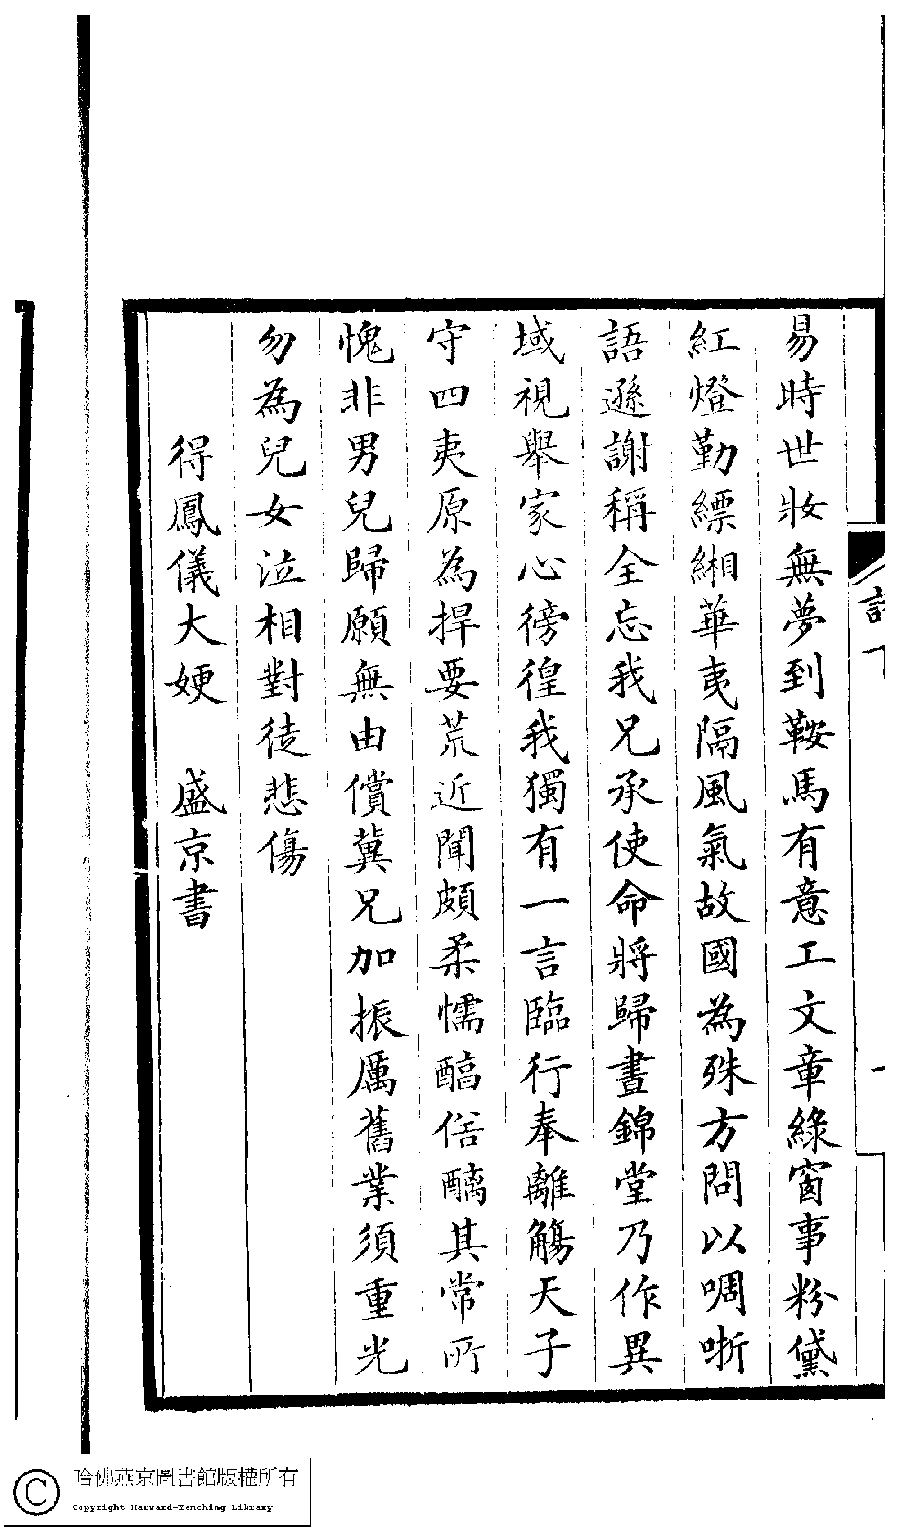 易時世妝無夢到鞍馬有意工文章綠窗事粉黛
紅燈勤縹緗華夷隔風氣故國為殊方問以啁哳
語遜謝稱全忘我兄承使命將歸晝錦堂乃作異
域視舉家心徬徨我獨有一言臨行奉離觴天子
守四夷原為捍要荒近聞頗柔懦醕俗醨其常所
愧非男兒歸願無由償冀兄加振厲舊業須重光
勿為兒女泣相對徒悲傷
得鳳儀大婹　盛京書
哈佛燕京圖書館版權所有
Copyright Harvard-Yenching Library